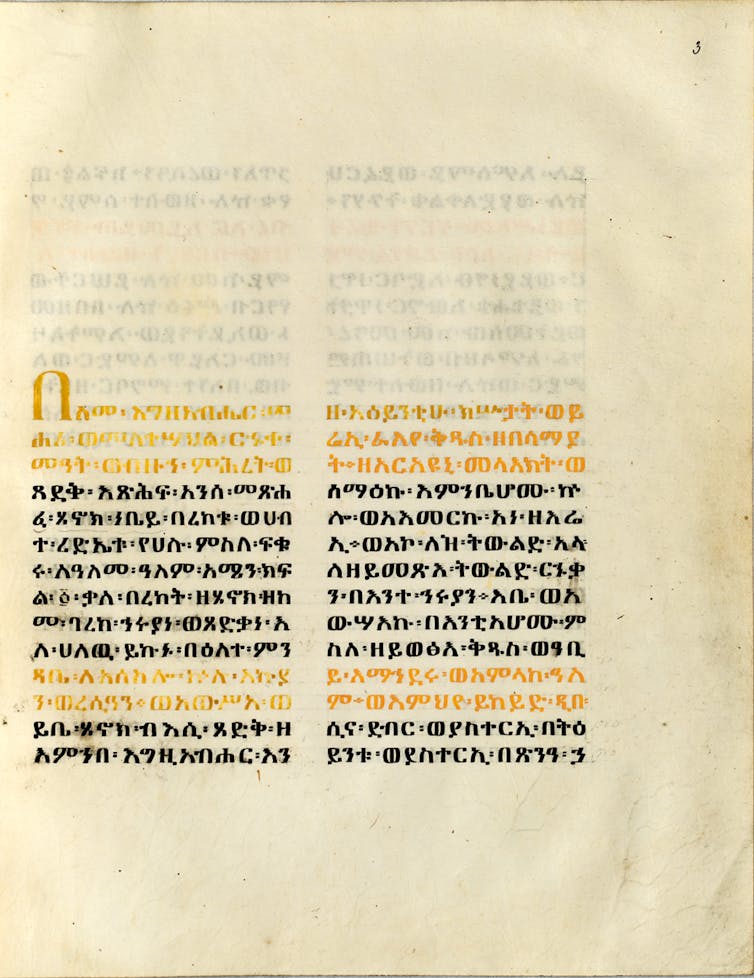 3
በስመ፡እግዚአብሔር፡መ
ሐሪ፡ወመስተሣህል፡ርኁቀ፡
መዓት፡ወብዙኅ፡ምሕረት፡ወ
ጻድቅ፡እጽሕፍ፡አንሰ፡መጽሐ
ፈ፡ሄኖክ፡ነቢይ፡በረከቱ፡ወሀብ
ተ፡ረድኤቱ፡የሀሉ፡ምስለ፡ፍቁ
ሩ፡ለዓለመ፡ዓለም፡አሜን፡ክፍ
ል፡፩፡ቃለ፡በረከት፡ዘሄኖክ፡ዘከ
መ፡ባረከ፡ኅሩያነ፡ወጻድቃነ፡እ
ለ፡ሀለዉ፡ይኩኑ፡በዕለተ፡ምን
ዳቤ፡ለአሰስሎ፡ኵሉ፡እኩያ
ን፡ወረሲዓን።ወአውሥአ፡ወ
ይቤ፡ሄኖክ፡ብእሲ፡ጻድቅ፡ዘ
እምኀበ፡እግዚአብሔር፡እን
ዘ፡አዕይንቲሁ፡ክሡታት፡ወይ
ሬኢ፡ራእየ፡ቅዱስ፡ዘበሰማያ
ት።ዘአርአዩኒ፡መላእክት፡ወ
ሰማዕኩ፡እምኀቤሆሙ፡ኵ
ሎ፡ወአእመርኩ፡አነ፡ዘእሬ
ኢ።ወአኮ፡ለዝ፡ትውልድ፡አላ
ለዘይመጽእ፡ትውልድ፡ርኁቃ
ን፡በእንተ፡ኅሩያን።እቤ፡ወአ
ውሣእኩ፡በእንቲአሆሙ፡ም
ስለ፡ዘይወፅእ፡ቅዱስ፡ወዓቢ
ይ፡እማኅደሩ፡ወአምላከ፡ዓለ
ም።ወእምህየ፡ይከይድ፡ዲበ፡
ሲና፡ደብር፡ወያስተርኢ፡በትዕ
ይንቱ፡ወያስተርኢ፡በጽንዓ፡ኃ